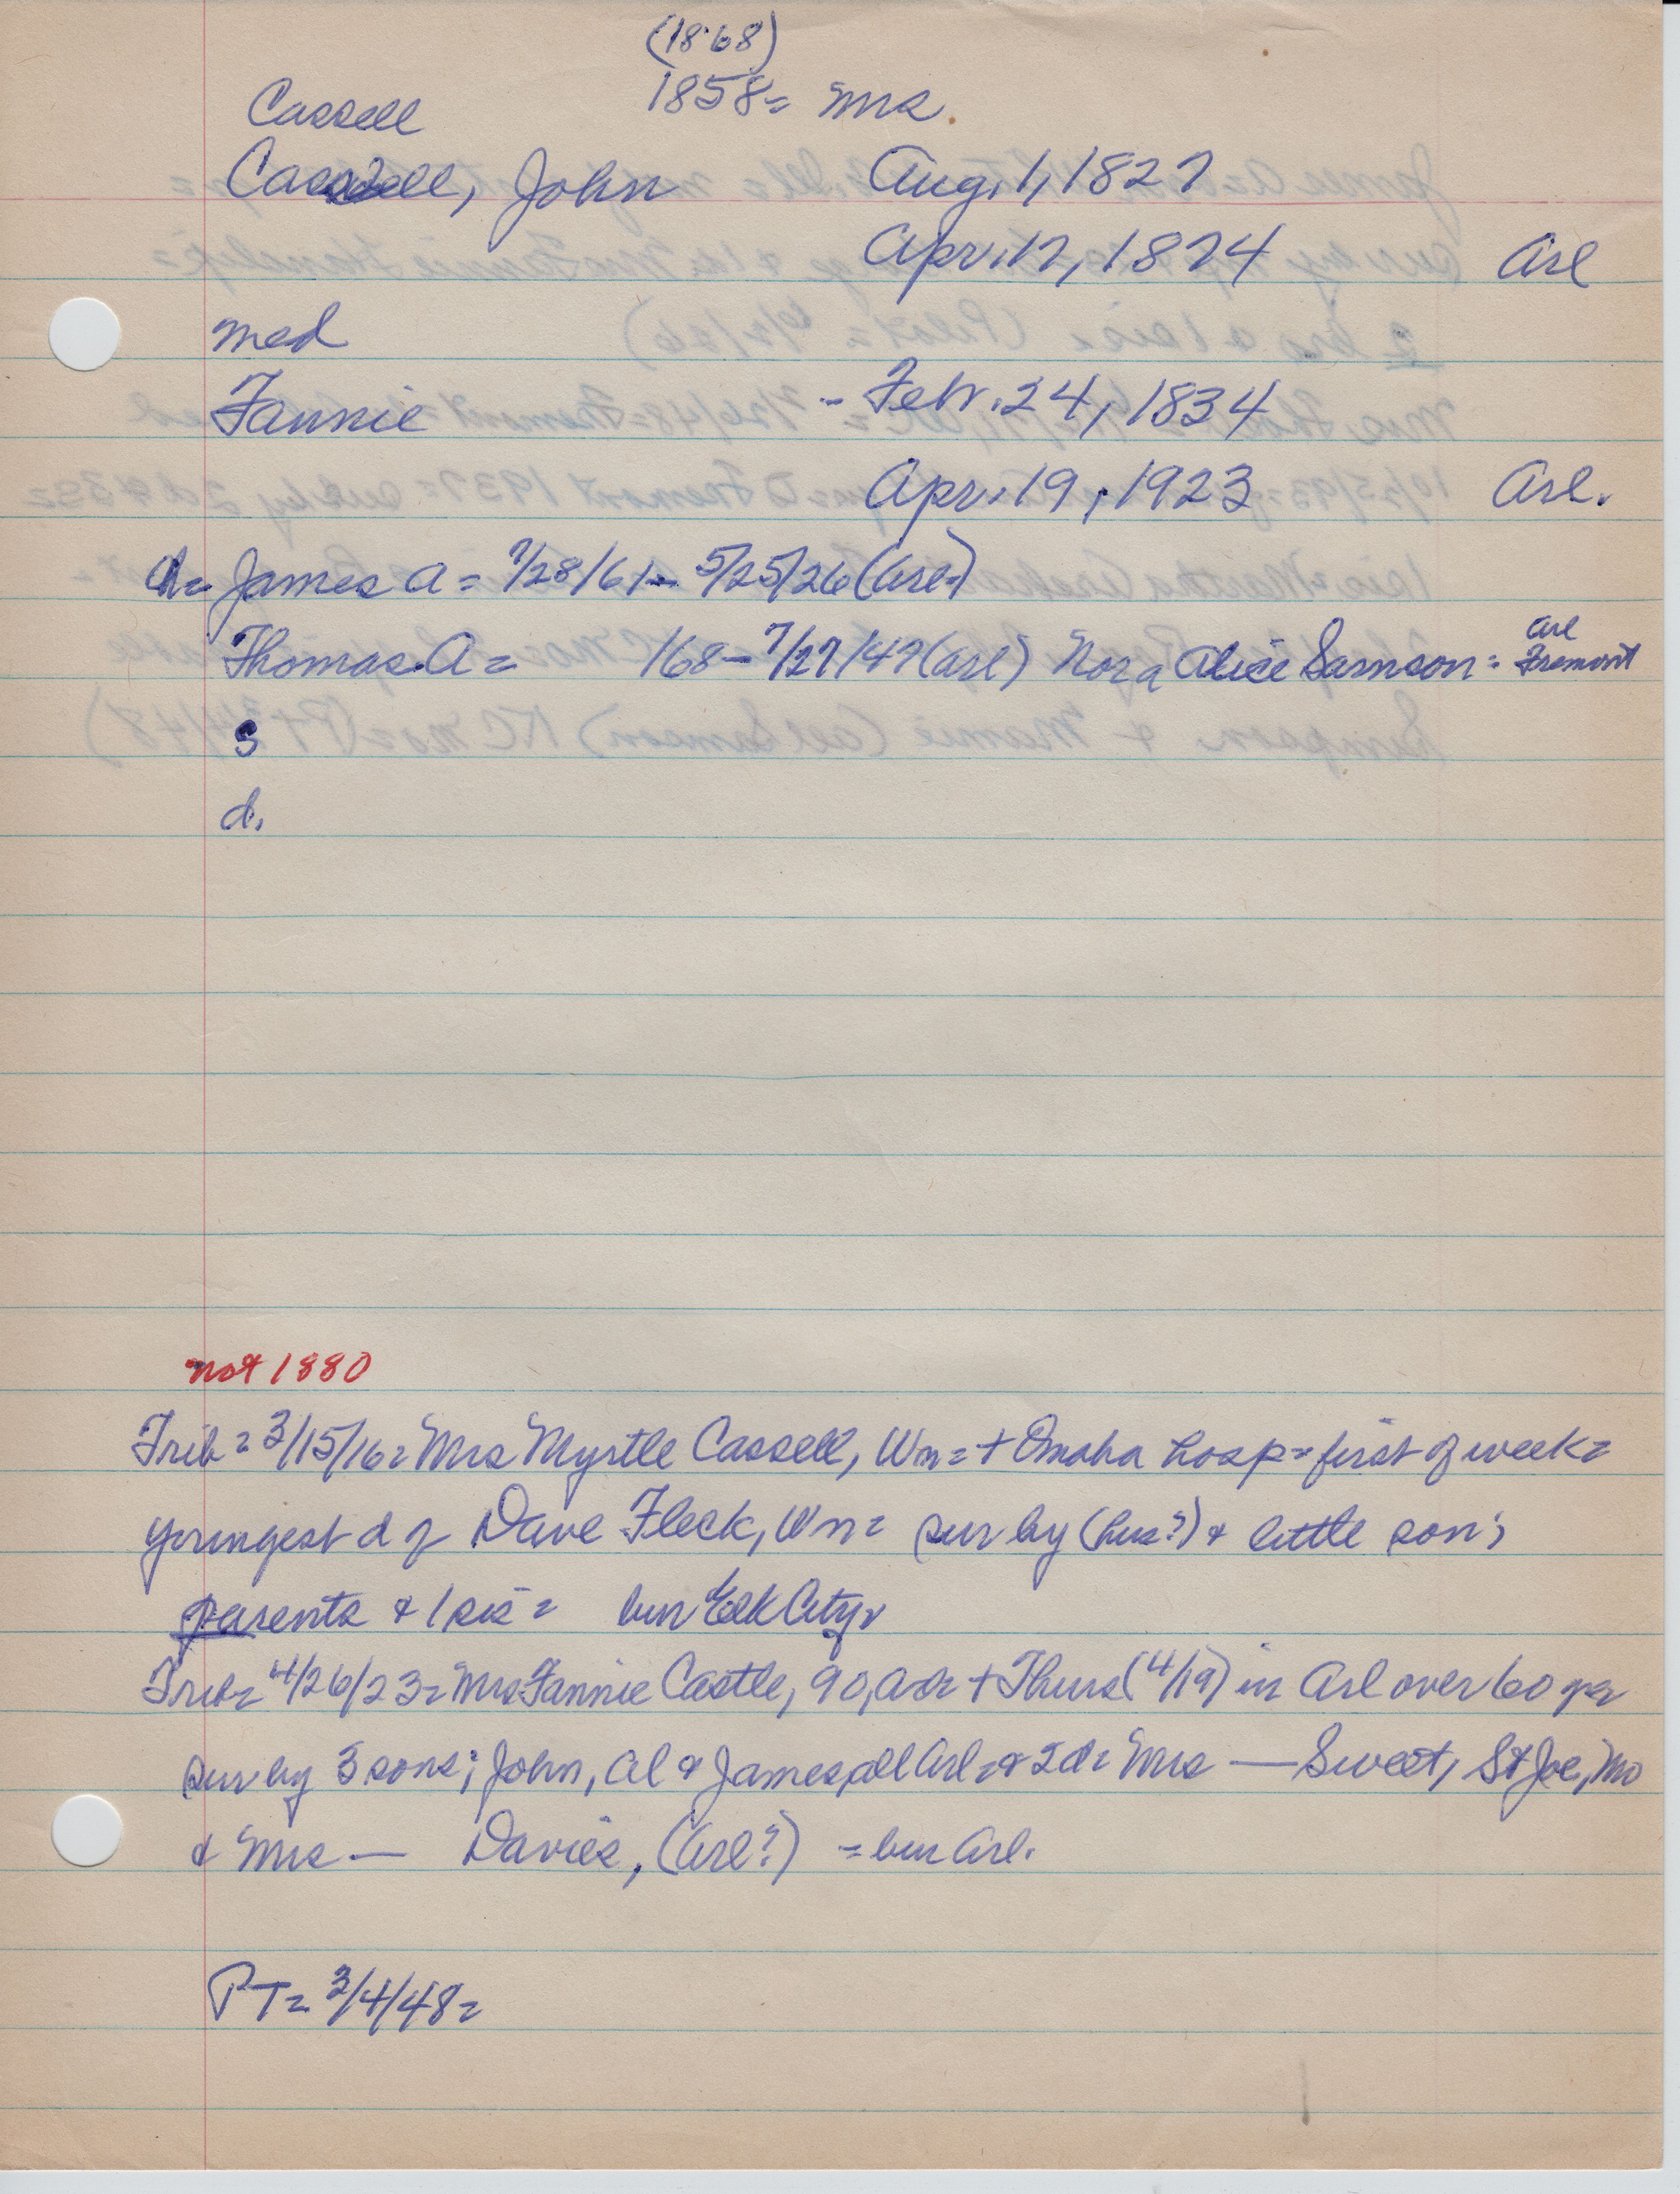 (1868)
1858= Ms.
Cassell
Cassell, John Aug. 1, 1827
Apr. 17, 1874 Arl
med
Fannie - Febr. 24, 1834
Apr. 19, 1923 Arl.
James A = 7/28/61 - 5/25/26 (Arl=)
Thomas. A = /68 - 7/27/49 (Arl) Nora Alice Samson = Arl Fremont
s
d.
not 1880
Trib = 3/15/16 = Mrs Myrtle Cassell, Wn = + Omaha hosp = first of week =
youngest d of Dave Fleck, Wn = sur by (hus?) & little son;
parents & 1 sis = bur Elk City.
Trib = 4/26/23 = Mrs Fannie Castle, 90, + Thurs (4/19) in Arl over 60 yrs
sur by 3 sons; John, Al & James, all Arl = & 2 d = Mrs — Sweet, St Joe, Mo
& Mrs — Davies, (Arl?) = bur Arl.
PT = 3/4/48 =